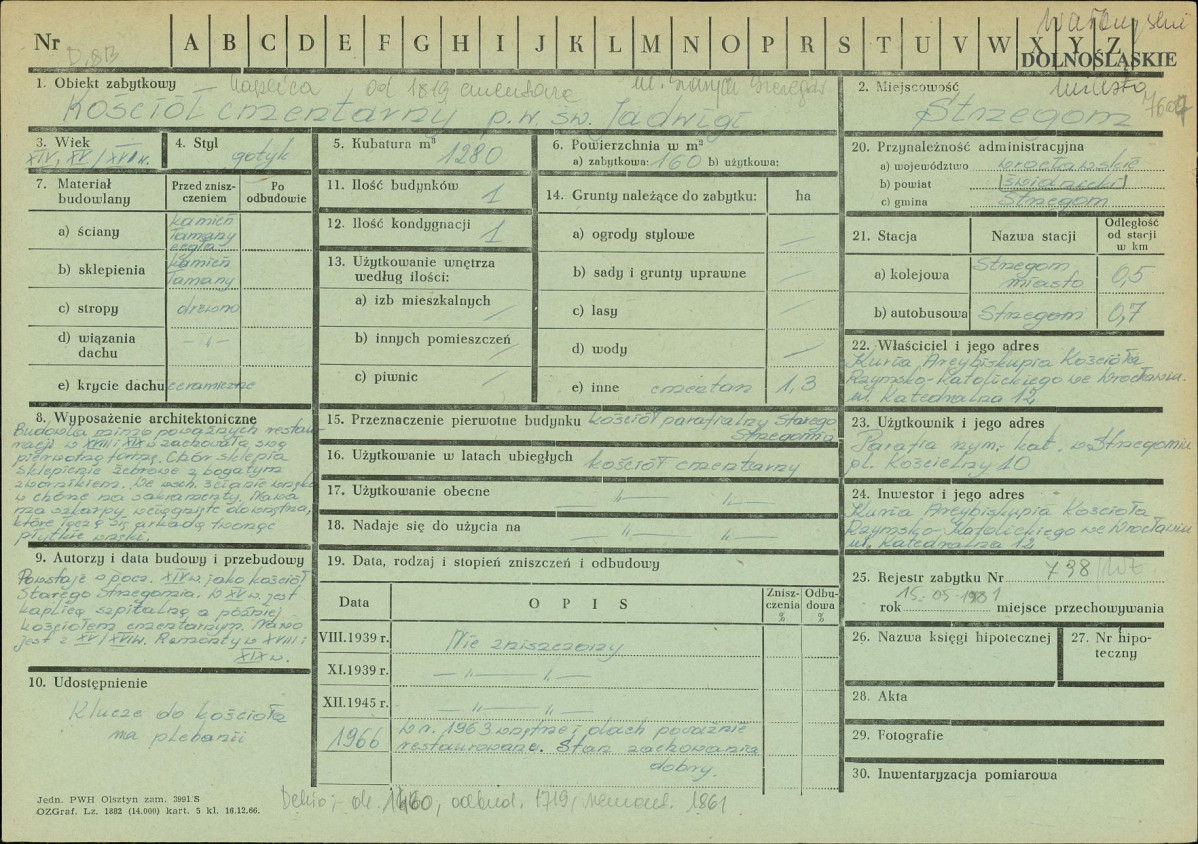 Nr
A B C D E F G H I J K L M N O P R S T U V W X Y Z
DOLNOŚLĄSKIE
miasto
1. Obiekt zabytkowy Kaplica od 1819 cmentarz
Kościół cmentarny p.w. św. Jadwigi
2. Miejscowość
Strzegom
3. Wiek
XIV, XV/XVI w.
4. Styl
gotyk
5. Kubatura m³
1280
6. Powierzchnia w m²
a) zabytkowa: 160 b) użytkowa:
7. Materiał budowlany
Przed zniszczeniem
Po odbudowie
a) ściany kamień łamany cegła
b) sklepienia kamień łamany
c) stropy drewno
d) wiązania dachu -"-
e) krycie dachu ceramiczne
8. Wyposażenie architektoniczne
Budowla mimo poważnych restau-
racji w XVIII i XIX w zachowała swą
pierwotną formę. Chór sklepia
sklepienie żebrowe z bogatym
zwornikiem. We wsch. ścianie wnęka
w chórze na sakramenty. Nawa
ma szkarpy wciągnięte do wnętrza,
które łączą się arkadą tworząc
płytkie wnęki.
9. Autorzy i data budowy i przebudowy
Powstaje w pocz. XIV w. jako kościół
Starego Strzegomia. W XV w. jest
kaplicą szpitalną a później
kościołem cmentarnym. Nawa
jest z XV/XVI w. Remonty w XVIII i
XIX w.
10. Udostępnienie
Klucze do kościoła
na plebanii
11. Ilość budynków 1
12. Ilość kondygnacji 1
13. Użytkowanie wnętrza według ilości:
a) izb mieszkalnych /
b) innych pomieszczeń /
c) piwnic /
14. Grunty należące do zabytku: ha
a) ogrody stylowe /
b) sady i grunty uprawne /
c) lasy /
d) wody /
e) inne cmentarz 1,3
15. Przeznaczenie pierwotne budynku kościół parafialny Starego
Strzegomia
16. Użytkowanie w latach ubiegłych kościół cmentarny
17. Użytkowanie obecne -"- -"-
18. Nadaje się do użycia na -"- -"-
19. Data, rodzaj i stopień zniszczeń i odbudowy
Data
OPIS
Zniszczenia %
Odbudowa %
VIII.1939 r. Nie zniszczony
XI.1939 r. -"- -"-
XII.1945 r. -"- -"-
1966 w r. 1963 wnętrze i dach poważnie
restaurowane. Stan zachowania
dobry.
20. Przynależność administracyjna
a) województwo wrocławskie
b) powiat świdnicki
c) gmina Strzegom
21. Stacja
Nazwa stacji
Odległość od stacji w km
a) kolejowa Strzegom miasto 0,5
b) autobusowa Strzegom 0,7
22. Właściciel i jego adres
Kuria Arcybiskupia Kościoła
Rzymsko-Katolickiego we Wrocławiu
ul. Katedralna 12
23. Użytkownik i jego adres
Parafia rzym.-kat. w Strzegomiu
pl. Kościelny 10
24. Inwestor i jego adres
Kuria Arcybiskupia Kościoła
Rzymsko-Katolickiego we Wrocławiu
ul. Katedralna 12
25. Rejestr zabytku Nr 798/Wł
rok 15.03.1981 miejsce przechowywania
26. Nazwa księgi hipotecznej
27. Nr hipoteczny
28. Akta
29. Fotografie
30. Inwentaryzacja pomiarowa
Jedn. PWH Olsztyn zam. 3991 S
OZGraf. Lz. 1882 (14.000) kart. 5 kl. 16.12.66.
Dehio; ok. 1460, odbud. 1719, remont. 1861